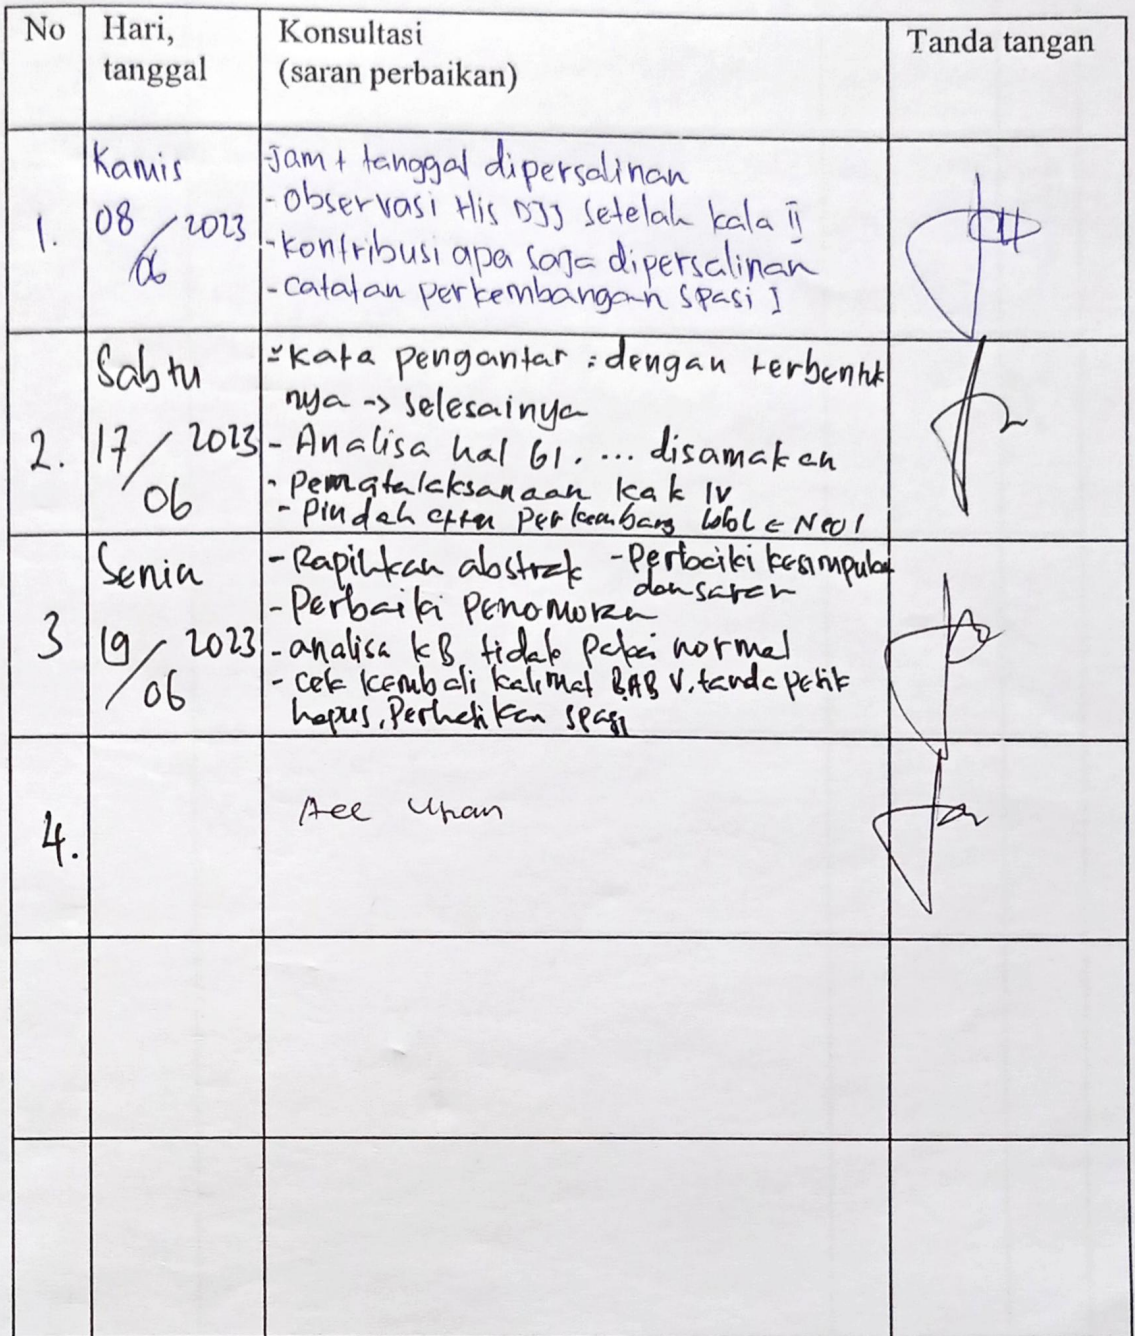 No
Hari,
tanggal
Konsultasi
(saran perbaikan)
Tanda tangan
1.
Kamis
08/06 2023
-Jam + tanggal dipersalinan
-Observasi His DJJ setelah kala II
-kontribusi apa saja dipersalinan
-catatan perkembangan spasi 1
2.
Sabtu
17/06 2023
-Kata pengantar : dengan terbentuk
nya -> selesainya
- Analisa hal 61. ... disamakan
- Penatalaksanaan kala IV
- Pindah perkembang
3
Senin
19/06 2023
-Rapihkan abstrak
-Perbaiki kesimpulan
dan saran
-Perbaiki penomoran
-analisa KB tidak pakai normal
- cek kembali kalimat BAB V. tanda petik
hapus. Perhatikan spasi
4.
Acc Ujian